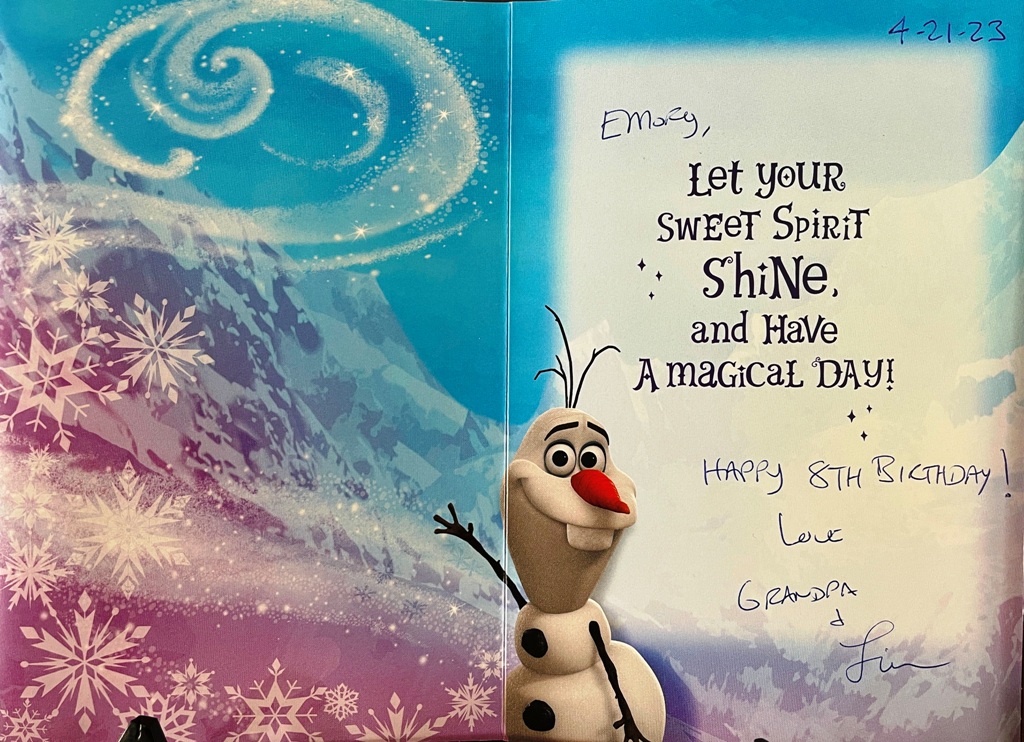 4-21-23
Emory,
Let your
sweet Spirit
Shine,
and Have
A magical Day!
HAPPY 8TH BIRTHDAY!
Love
GRANDPA
&